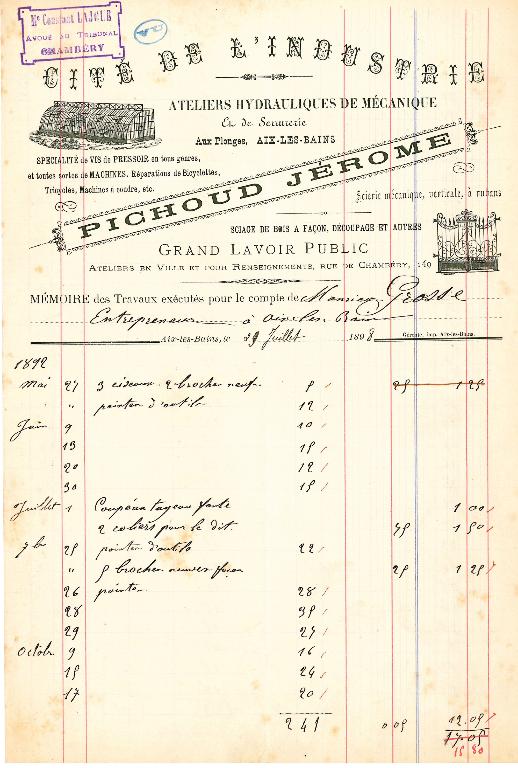 Me Constant LAJOUE
AVOUÉ AU TRIBUNAL
CHAMBÉRY
CITÉ DE L'INDUSTRIE
ATELIERS HYDRAULIQUES DE MÉCANIQUE
Et de Serrurerie
Aux Plonges, AIX-LES-BAINS
SPÉCIALITÉ de VIS de PRESSOIR en tous genres,
et toutes sortes de MACHINES, Réparations de Bicyclettes,
Tricycles, Machines à coudre, etc.
PICHOUD JÉROME
Scierie mécanique, verticale, à rubans
SCIAGE DE BOIS A FAÇON, DÉCOUPAGE ET AUTRES
GRAND LAVOIR PUBLIC
ATELIERS EN VILLE ET POUR RENSEIGNEMENTS, RUE DE CHAMBÉRY, 140
MÉMOIRE des Travaux exécutés pour le compte de Monsieur Grosse
Entrepreneur à Aix les Bains
Aix-les-Bains, le 29 Juillet 1898
Gérente, imp. Aix-les-Bains.
1892
Mai 27 3 ciseaux 2 broches neuf. 5 25 1 25
" pointer d'outils 12
Juin 9 10
13 15
20 12
30 15
Juillet 1 1 00
2 coliers pour le dit. 75 1 50
7bre 25 pointer d'outils 22
" 5 broches neuves façon 25 1 25
26 pointer 28
28 35
29 27
Octobr 9 16
15 24
17 20
241 0 05 12.05
17.05
15 80